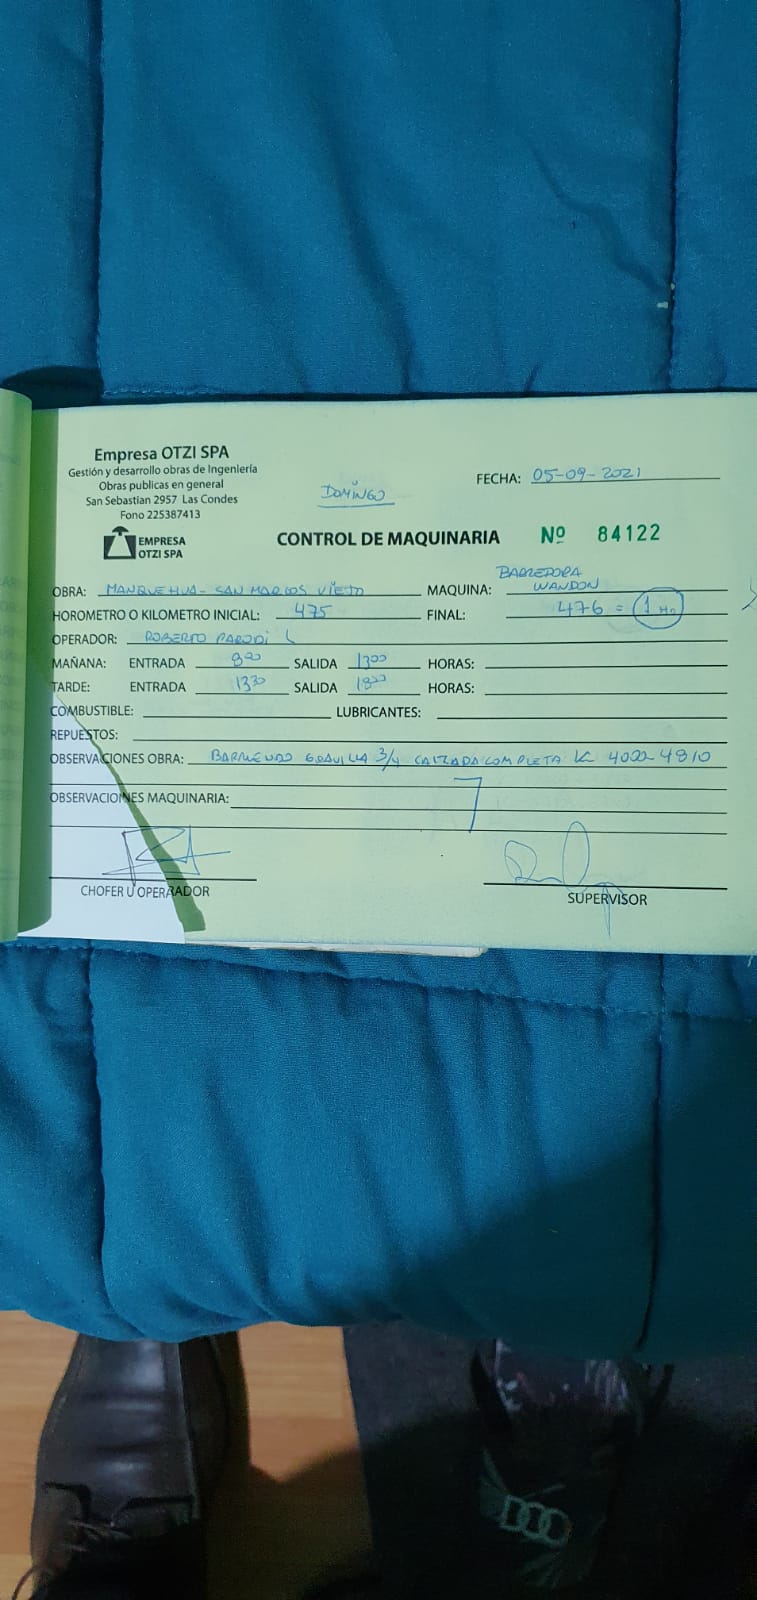 Empresa OTZI SPA
Gestión y desarrollo obras de Ingeniería
Obras publicas en general
San Sebastian 2957 Las Condes
Fono 225387413
EMPRESA
OTZI SPA
DOMINGO
FECHA: 05-09-2021
CONTROL DE MAQUINARIA Nº 84122
OBRA: MANQUEHUA - SAN MARCOS VIEJO MAQUINA: BARREDORA
WANDON
HOROMETRO O KILOMETRO INICIAL: 475 FINAL: 476 = 1 Hr
OPERADOR: ROBERTO PARODI L
MAÑANA: ENTRADA 800 SALIDA 1300 HORAS:
TARDE: ENTRADA 1330 SALIDA 1800 HORAS:
COMBUSTIBLE: LUBRICANTES:
REPUESTOS:
OBSERVACIONES OBRA: BARRIENDO GRAVILLA 3/4 CALZADA COMPLETA 4022 4810
OBSERVACIONES MAQUINARIA:
CHOFER U OPERRADOR
SUPERVISOR